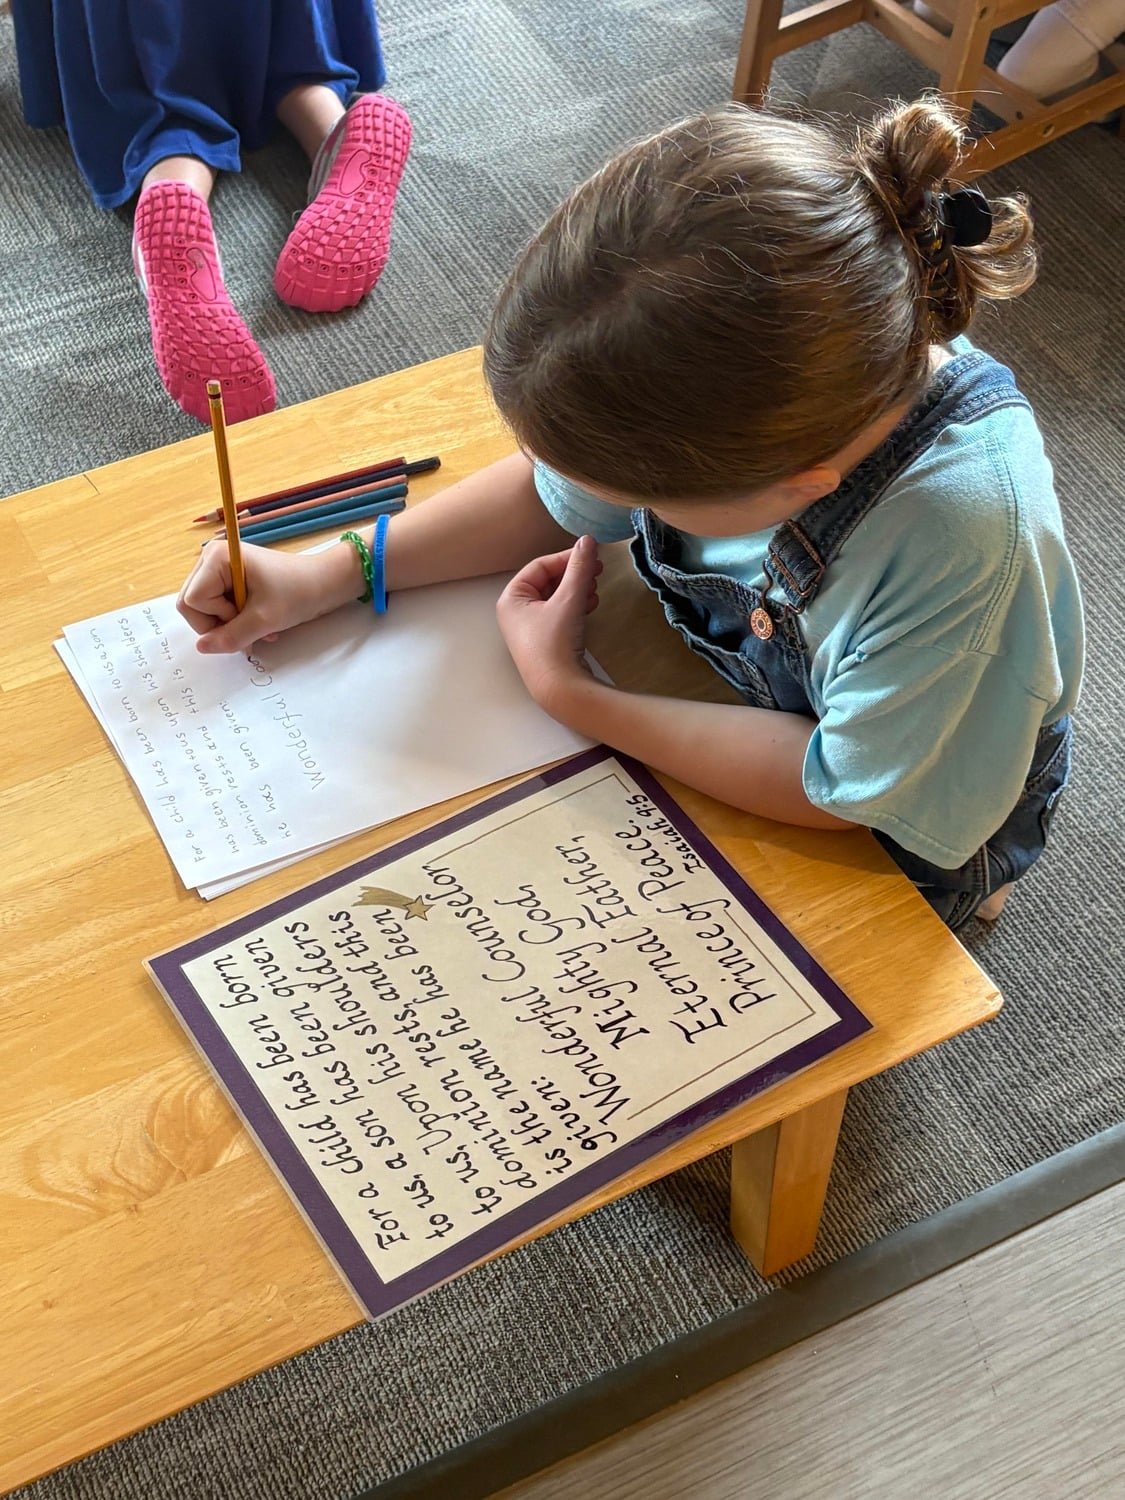 For a child has been born to us a son
has been given to us upon his shoulders
dominion rests and this is the name
he has been given:
Wonderful Coo
For a child has been born
to us, a son has been given
to us, Upon his shoulders
dominion rests, and this
is the name he has been
given:
Wonderful Counselor,
Mighty God,
Eternal Father,
Prince of Peace.
Isaiah 9:5